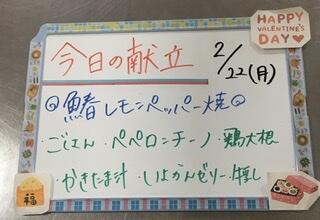 HAPPY
VALENTINE'S
DAY
今日の献立
2/22(月)
◎鰆レモンペッパー焼◎
・ごはん・ペペロンチーノ・鶏大根
・かきたま汁・いよかんゼリー・牛乳
福